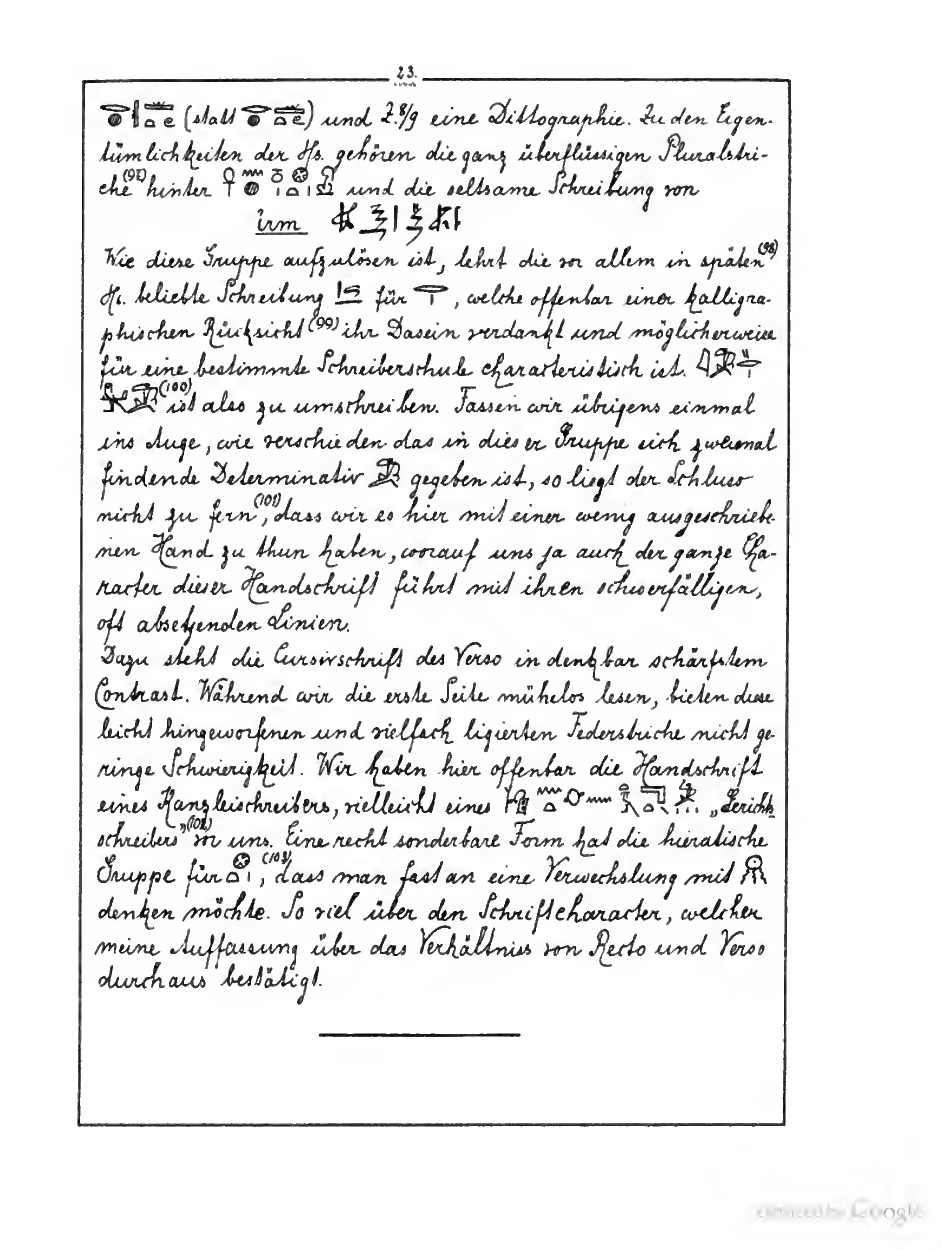 23.
(statt ) und Z. 8/9 eine Dittographie. Zu den Eigen-
tümlichkeiten der Hs. gehören die ganz überflüssigen Pluralstri-
che hinter und die seltsame Schreibung von
irm
Wie diese Gruppe aufzulösen ist, lehrt die vor allem in späten (98)
Hs. beliebte Schreibung für , welche offenbar einer kalligra-
phischen Rücksicht (99) ihr Dasein verdankt und möglicherweise
für eine bestimmte Schreiberschule characteristisch ist.
(100) ist also zu umschreiben. Fassen wir übrigens einmal
ins Auge, wie verschieden das in dieser Gruppe sich zweimal
findende Determinativ gegeben ist, so liegt der Schluss
nicht zu fern (101), dass wir es hier mit einer wenig ausgeschriebe-
nen Hand zu thun haben, worauf uns ja auch der ganze Cha-
racter dieser Handschrift führt mit ihren schwerfälligen,
oft absetzenden Linien.
Dazu steht die Cursivschrift des Verso in denkbar schärfstem
Contrast. Während wir die erste Seite mühelos lesen, bieten diese
leicht hingeworfenen und vielfach ligierten Federstriche nicht ge-
ringe Schwierigkeit. Wir haben hier offenbar die Handschrift
eines Kanzleischreibers, vielleicht eines „Gerichts-
schreibers" (102) vor uns. Eine recht sonderbare Form hat die hieratische
Gruppe für , (103) dass man fast an eine Verwechslung mit
denken möchte. So viel über den Schriftcharacter, welcher
meine Auffassung über das Verhältniss von Recto und Verso
durchaus bestätigt.
Digitized by Google